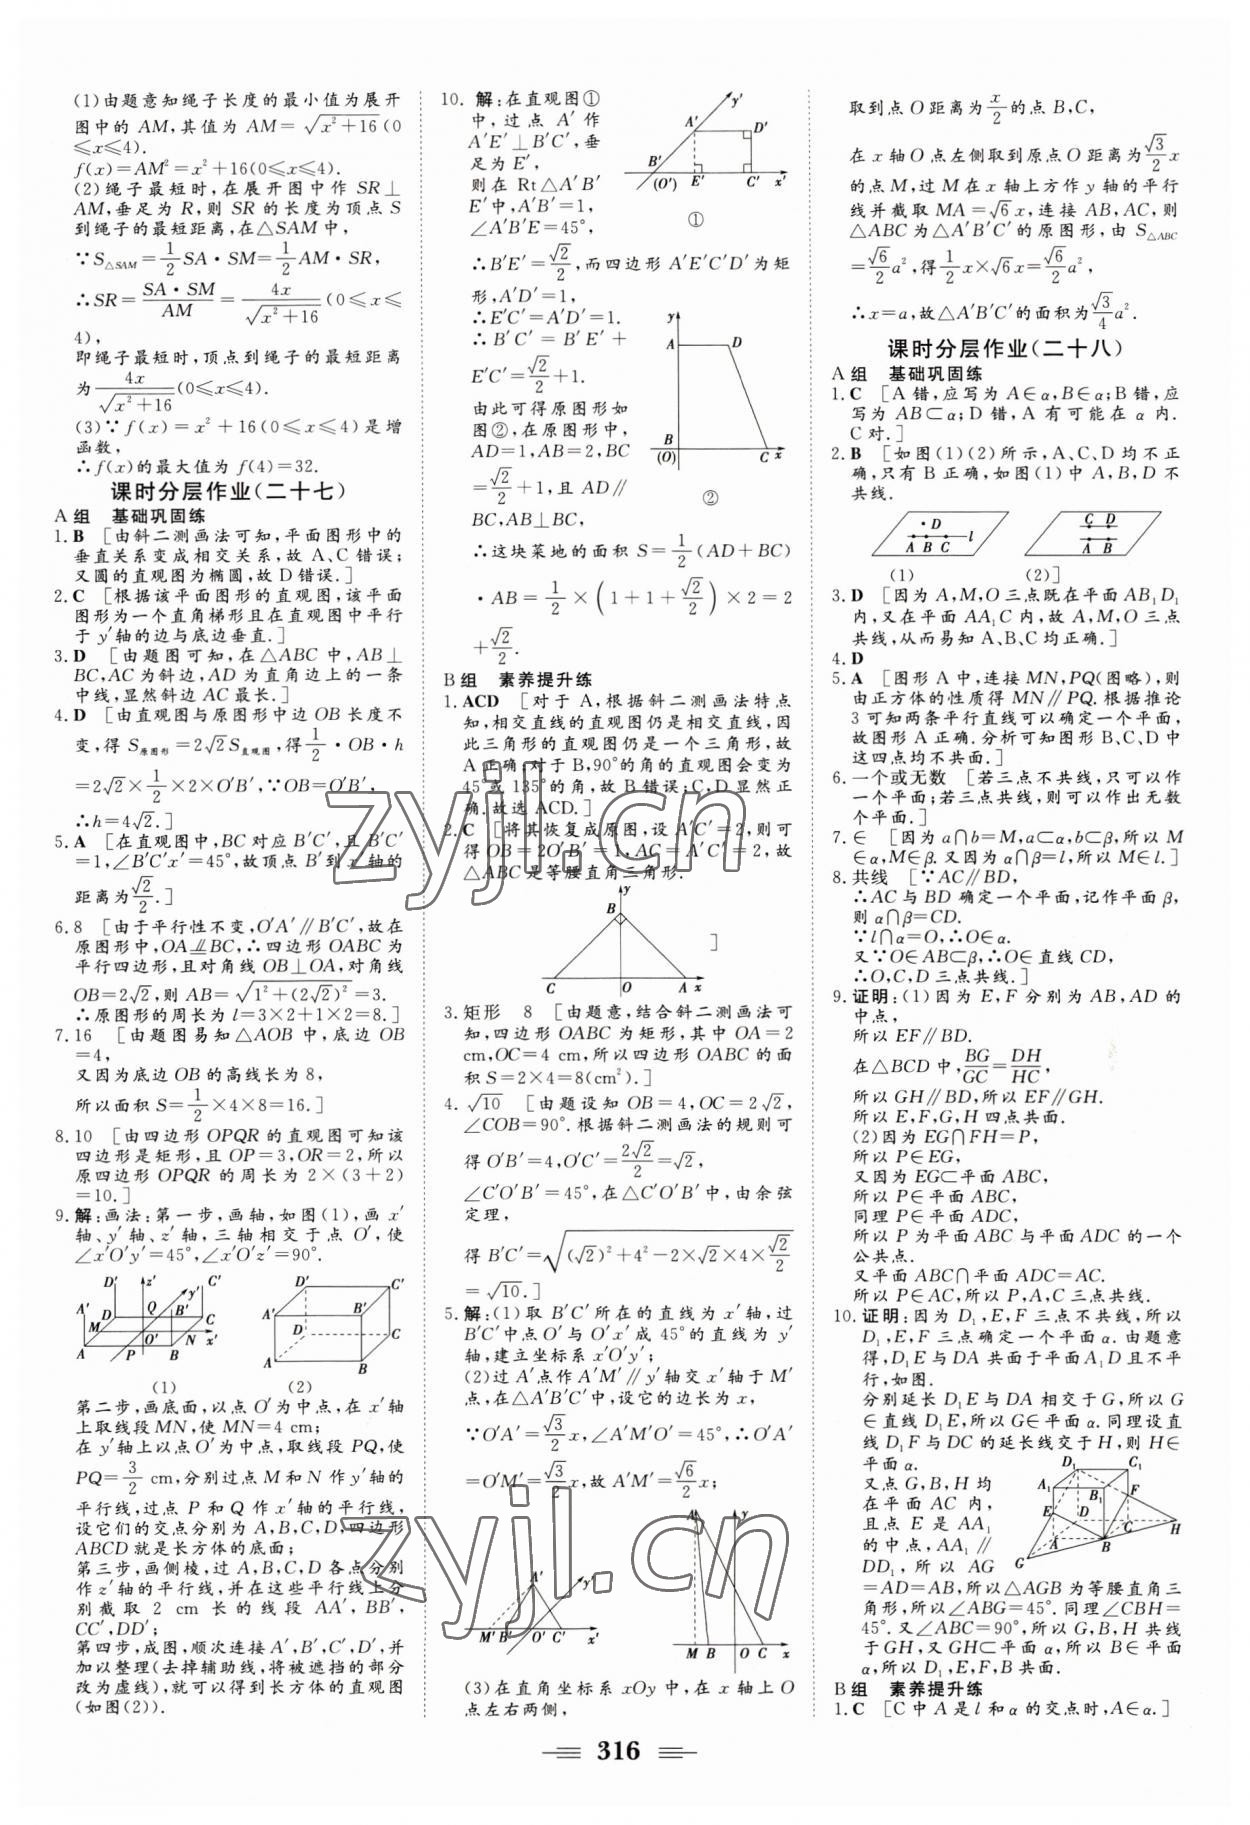 (1)由题意知绳子长度的最小值为展开
图中的 AM,其值为 AM=√(x²+16)(0
≤x≤4).
f(x)=AM²=x²+16(0≤x≤4).
(2)绳子最短时,在展开图中作 SR⊥
AM,垂足为 R,则 SR 的长度为顶点 S
到绳子的最短距离,在△SAM 中,
∵S△SAM=1/2 SA·SM=1/2 AM·SR,
∴SR=SA·SM/AM=4x/√(x²+16)(0≤x≤
4),
即绳子最短时,顶点到绳子的最短距离
为 4x/√(x²+16)(0≤x≤4).
(3)∵f(x)=x²+16(0≤x≤4)是增
函数,
∴f(x)的最大值为 f(4)=32.
课时分层作业(二十七)
A 组 基础巩固练
1.B [由斜二测画法可知,平面图形中的
垂直关系变成相交关系,故 A、C 错误;
又圆的直观图为椭圆,故 D 错误.]
2.C [根据该平面图形的直观图,该平面
图形为一个直角梯形且在直观图中平行
于 y′轴的边与底边垂直.]
3.D [由题图可知,在△ABC 中,AB⊥
BC,AC 为斜边,AD 为直角边上的一条
中线,显然斜边 AC 最长.]
4.D [由直观图与原图形中边 OB 长度不
变,得 S原图形=2√2S直观图,得1/2·OB·h
=2√2×1/2×2×O′B′,∵OB=O′B′,
∴h=4√2.]
5.A [在直观图中,BC 对应 B′C′,且 B′C′
=1,∠B′C′x′=45°,故顶点 B′到 x′轴的
距离为√2/2.]
6.8 [由于平行性不变,O′A′∥B′C′,故在
原图形中,OA⫽BC,∴四边形 OABC 为
平行四边形,且对角线 OB⊥OA,对角线
OB=2√2,则 AB=√(1²+(2√2)²)=3.
∴原图形的周长为 l=3×2+1×2=8.]
7.16 [由题图易知△AOB 中,底边 OB
=4,
又因为底边 OB 的高线长为 8,
所以面积 S=1/2×4×8=16.]
8.10 [由四边形 OPQR 的直观图可知该
四边形是矩形,且 OP=3,OR=2,所以
原四边形 OPQR 的周长为 2×(3+2)
=10.]
9.解:画法:第一步,画轴,如图(1),画 x′
轴、y′轴、z′轴,三轴相交于点 O′,使
∠x′O′y′=45°,∠x′O′z′=90°.
D′ z′ C′ y′
A′ D Q B′ C
M O′ N x′
A P B
(1)
D′ C′
A′ B′
D C
A B
(2)
第二步,画底面,以点 O′为中点,在 x′轴
上取线段 MN,使 MN=4 cm;
在 y′轴上以点 O′为中点,取线段 PQ,使
PQ=3/2 cm,分别过点 M 和 N 作 y′轴的
平行线,过点 P 和 Q 作 x′轴的平行线,
设它们的交点分别为 A,B,C,D,四边形
ABCD 就是长方体的底面;
第三步,画侧棱,过 A,B,C,D 各点分别
作 z′轴的平行线,并在这些平行线上分
别截取 2 cm 长的线段 AA′,BB′,
CC′,DD′;
第四步,成图,顺次连接 A′,B′,C′,D′,并
加以整理(去掉辅助线,将被遮挡的部分
改为虚线),就可以得到长方体的直观图
(如图(2)).
10.解:在直观图①
中,过点 A′ 作
A′E′⊥B′C′,垂
足为 E′,
则在 Rt△A′B′
E′中,A′B′=1,
∠A′B′E=45°,
y′ A′ D′
B′
(O′) E′ C′ x′
①
∴B′E′=√2/2,而四边形 A′E′C′D′为矩
形,A′D′=1,
∴E′C′=A′D′=1.
∴B′C′=B′E′+
E′C′=√2/2+1.
由此可得原图形如
图②,在原图形中,
AD=1,AB=2,BC
=√2/2+1,且 AD∥
BC,AB⊥BC,
y
A D
B
(O) C x
②
∴这块菜地的面积 S=1/2(AD+BC)
·AB=1/2×(1+1+√2/2)×2=2
+√2/2.
B 组 素养提升练
1.ACD [对于 A,根据斜二测画法特点
知,相交直线的直观图仍是相交直线,因
此三角形的直观图仍是一个三角形,故
A 正确;对于 B,90°的角的直观图会变为
45°或 135°的角,故 B 错误;C,D 显然正
确.故选 ACD.]
2.C [将其恢复成原图,设 A′C′=2,则可
得 OB=2O′B′=1,AC=A′C′=2,故
△ABC 是等腰直角三角形.
y
B
C O A x
]
3.矩形 8 [由题意,结合斜二测画法可
知,四边形 OABC 为矩形,其中 OA=2
cm,OC=4 cm,所以四边形 OABC 的面
积 S=2×4=8(cm²).]
4.√10 [由题设知 OB=4,OC=2√2,
∠COB=90°.根据斜二测画法的规则可
得 O′B′=4,O′C′=2√2/2=√2,
∠C′O′B′=45°,在△C′O′B′中,由余弦
定理,
得 B′C′=√((√2)²+4²-2×√2×4×√2/2)
=√10.]
5.解:(1)取 B′C′所在的直线为 x′轴,过
B′C′中点 O′与 O′x′成 45°的直线为 y′
轴,建立坐标系 x′O′y′;
(2)过 A′点作 A′M′∥y′轴交 x′轴于 M′
点,在△A′B′C′中,设它的边长为 x,
∵O′A′=√3/2 x,∠A′M′O′=45°,∴O′A′
=O′M′=√3/2 x,故 A′M′=√6/2 x;
A′ y′
M′ B′ O′ C′ x′
A y
M B O C x
(3)在直角坐标系 xOy 中,在 x 轴上 O
点左右两侧,
取到点 O 距离为x/2的点 B,C,
在 x 轴 O 点左侧取到原点 O 距离为√3/2 x
的点 M,过 M 在 x 轴上方作 y 轴的平行
线并截取 MA=√6x,连接 AB,AC,则
△ABC 为△A′B′C′的原图形,由 S△ABC
=√6/2 a²,得1/2 x×√6x=√6/2 a²,
∴x=a,故△A′B′C′的面积为√3/4 a².
课时分层作业(二十八)
A 组 基础巩固练
1.C [A 错,应写为 A∈α,B∈α;B 错,应
写为 AB⊂α;D 错,A 有可能在 α 内.
C 对.]
2.B [如图(1)(2)所示,A、C、D 均不正
确,只有 B 正确,如图(1)中 A,B,D 不
共线.
D
A B C l
(1)
C D
A B
(2)]
3.D [因为 A,M,O 三点既在平面 AB₁D₁
内,又在平面 AA₁C 内,故 A,M,O 三点
共线,从而易知 A、B、C 均正确.]
4.D
5.A [图形 A 中,连接 MN,PQ(图略),则
由正方体的性质得 MN∥PQ.根据推论
3 可知两条平行直线可以确定一个平面,
故图形 A 正确.分析可知图形 B、C、D 中
这四点均不共面.]
6.一个或无数 [若三点不共线,只可以作
一个平面;若三点共线,则可以作出无数
个平面.]
7.∈ [因为 a∩b=M,a⊂α,b⊂β,所以 M
∈α,M∈β.又因为 α∩β=l,所以 M∈l.]
8.共线 [∵AC∥BD,
∴AC 与 BD 确定一个平面,记作平面 β,
则 α∩β=CD.
∵l∩α=O,∴O∈α.
又∵O∈AB⊂β,∴O∈直线 CD,
∴O,C,D 三点共线.]
9.证明:(1)因为 E,F 分别为 AB,AD 的
中点,
所以 EF∥BD.
在△BCD 中,BG/GC=DH/HC,
所以 GH∥BD,所以 EF∥GH.
所以 E,F,G,H 四点共面.
(2)因为 EG∩FH=P,
所以 P∈EG,
又因为 EG⊂平面 ABC,
所以 P∈平面 ABC,
同理 P∈平面 ADC,
所以 P 为平面 ABC 与平面 ADC 的一个
公共点.
又平面 ABC∩平面 ADC=AC.
所以 P∈AC,所以 P,A,C 三点共线.
10.证明:因为 D₁,E,F 三点不共线,所以
D₁,E,F 三点确定一个平面 α.由题意
得,D₁E 与 DA 共面于平面 A₁D 且不平
行,如图.
分别延长 D₁E 与 DA 相交于 G,所以 G
∈直线 D₁E,所以 G∈平面 α.同理设直
线 D₁F 与 DC 的延长线交于 H,则 H∈
平面 α.
又点 G,B,H 均
在平面 AC 内,
且点 E 是 AA₁
的中点,AA₁∥
DD₁,所以 AG
D₁ C₁
A₁ B₁ F
E D C H
A B
G
=AD=AB,所以△AGB 为等腰直角三
角形,所以∠ABG=45°.同理∠CBH=
45°.又∠ABC=90°,所以 G,B,H 共线
于 GH,又 GH⊂平面 α,所以 B∈平面
α,所以 D₁,E,F,B 共面.
B 组 素养提升练
1.C [C 中 A 是 l 和 α 的交点时,A∈α.]
316
zyjl.cn
zyjl.cn